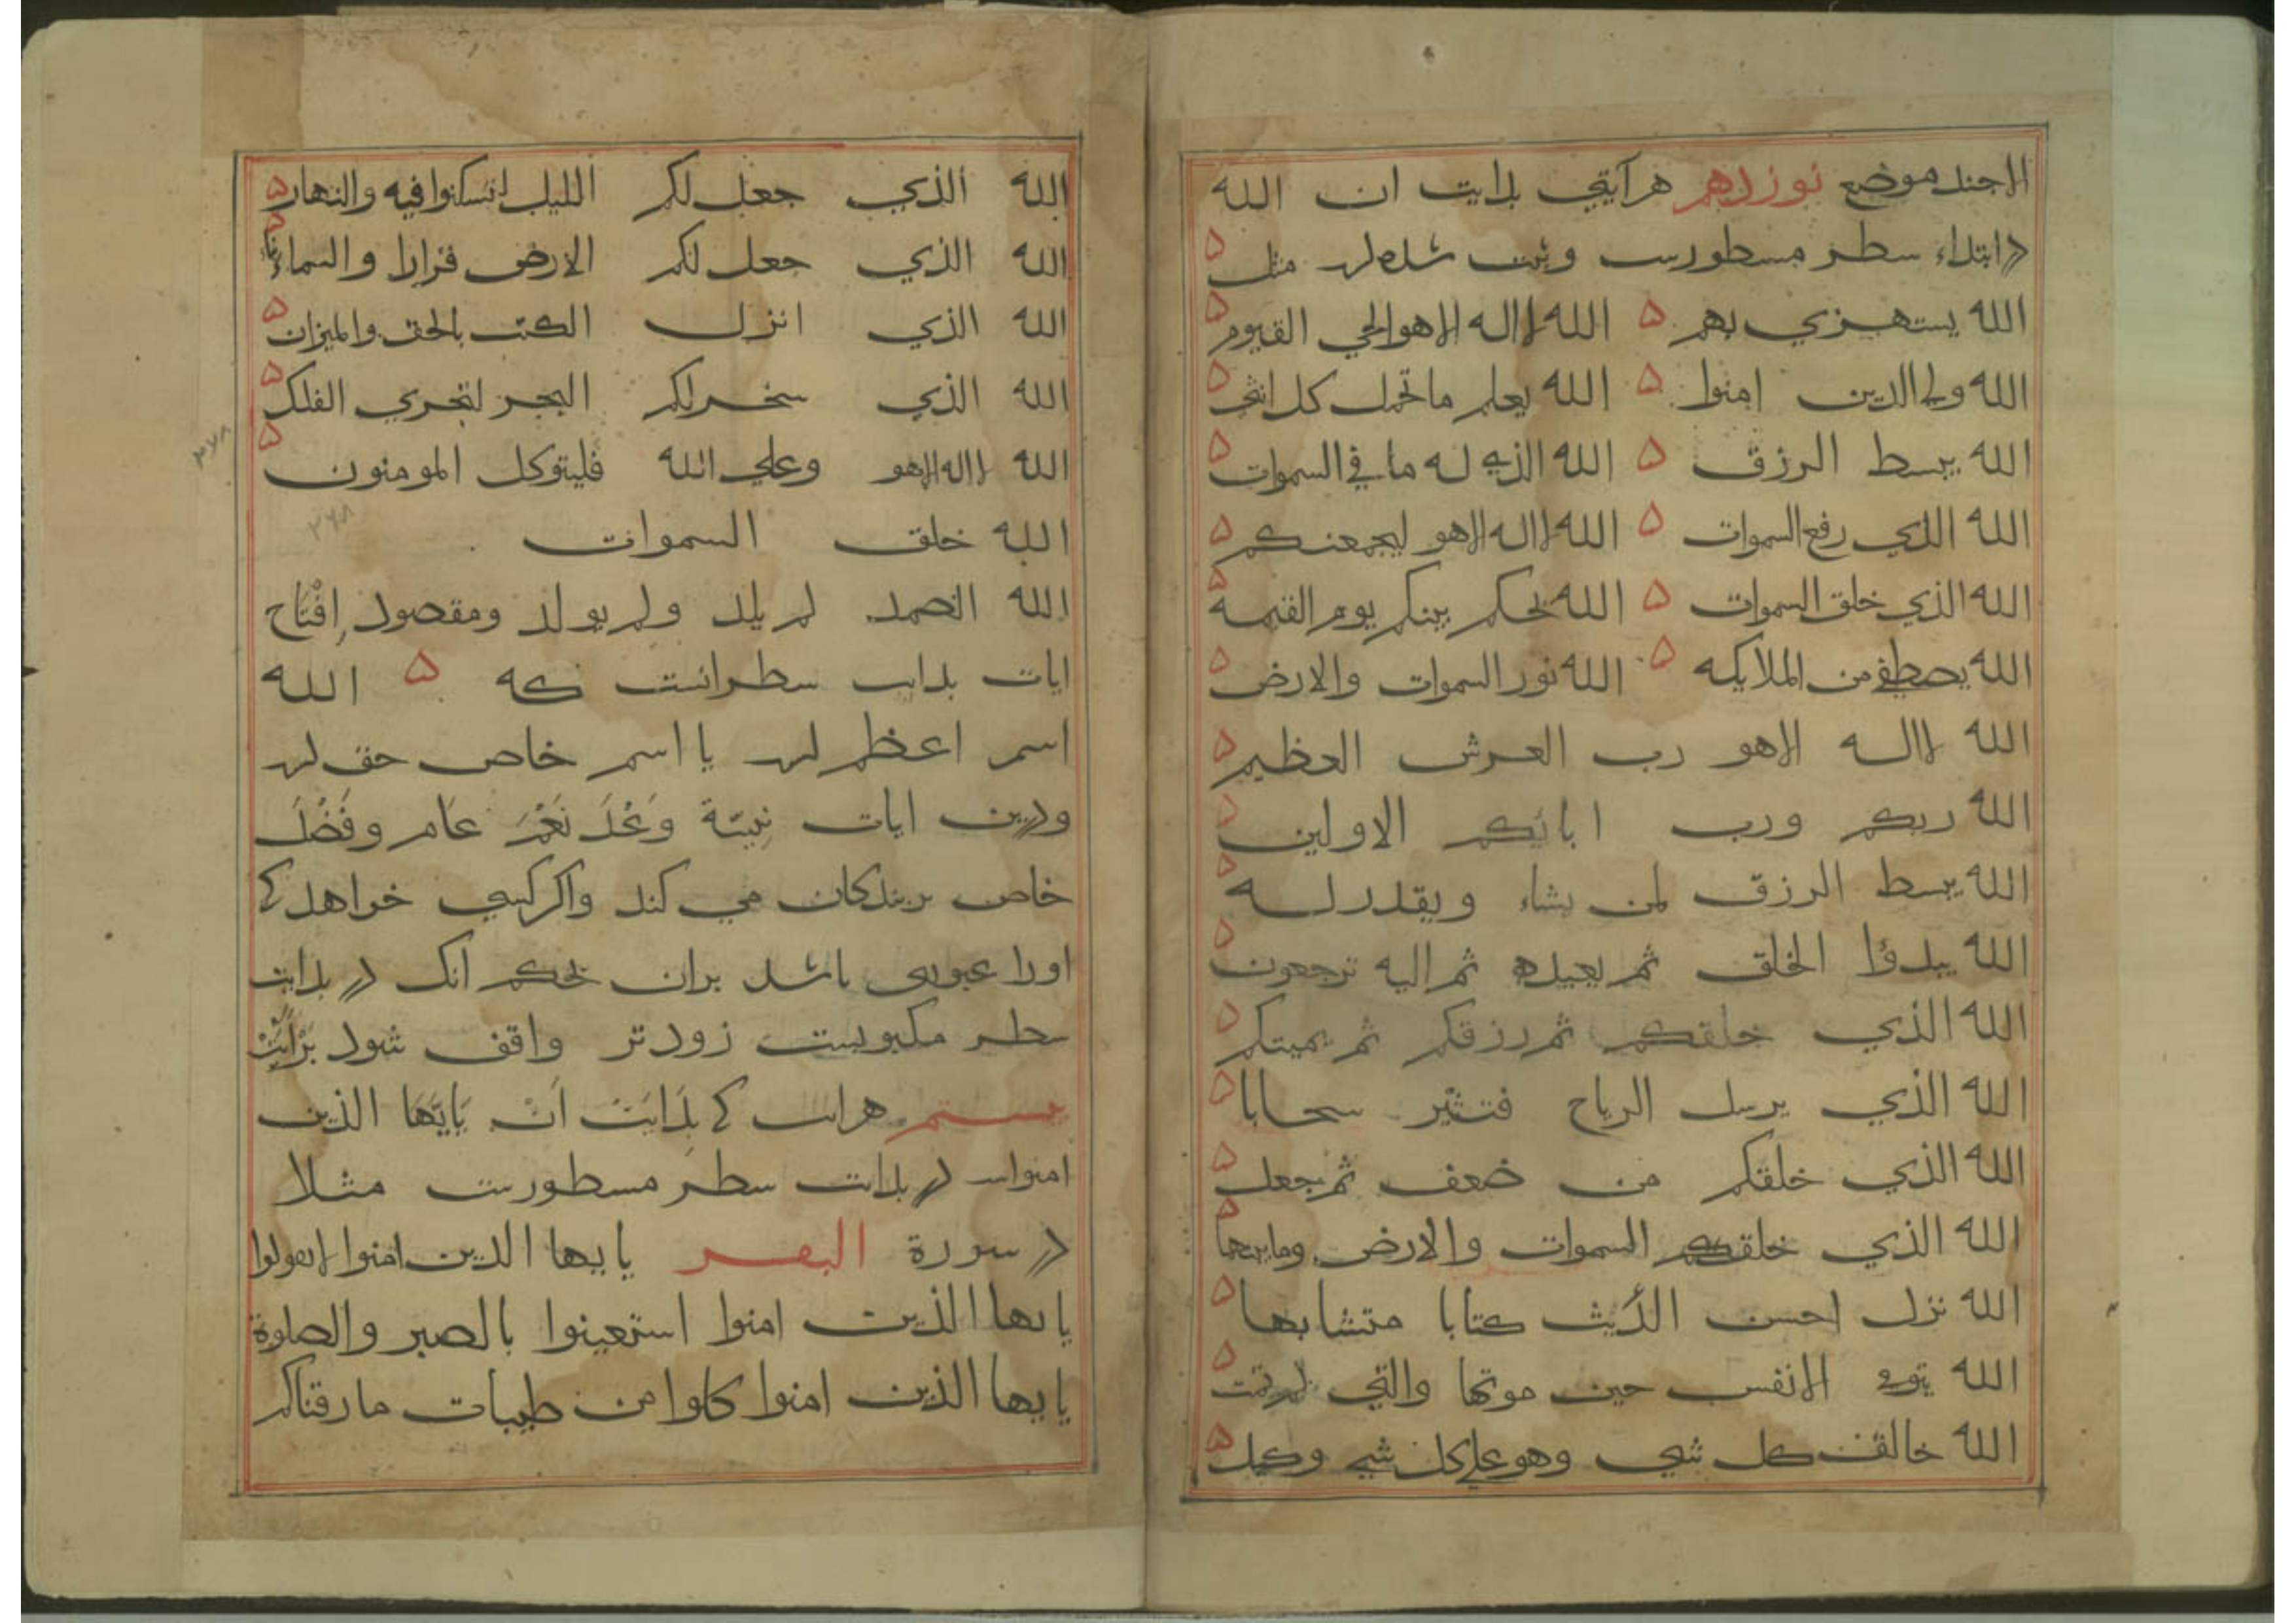 الاجند موضع نوزدهم هر آیتی بدایت ان الله
در ابتداء سطر مسطورست وثبت شده است مثل
الله يستهزي بهم ۵ الله لا اله الا هو الحي القيوم ۵
الله ولي الذين امنوا ۵ الله يعلم ما تحمل كل انثى ۵
الله يبسط الرزق ۵ الله الذي له ما في السموات ۵
الله الذي رفع السموات ۵ الله لا اله الا هو ليجمعنكم ۵
الله الذي خلق السموات ۵ الله يحكم بينكم يوم القيمة ۵
الله يصطفي من الملايكه ۵ الله نور السموات والارض ۵
الله لا اله الا هو رب العرش العظيم ۵
الله ربكم ورب ابائكم الاولين ۵
الله يبسط الرزق لمن يشاء ويقدر له ۵
الله يبدؤا الخلق ثم يعيده ثم اليه ترجعون ۵
الله الذي خلقكم ثم رزقكم ثم يميتكم ۵
الله الذي يرسل الرياح فتثير سحابا ۵
الله الذي خلقكم من ضعف ثم جعل ۵
الله الذي خلقكم السموات والارض وما بينهما ۵
الله نزل احسن كتابا متشابها ۵
الله يتوفى الانفس حين موتها والتي لم تمت ۵
الله خالق كل شي وهو على كل شي وكيل ۵
الله الذي جعل لكم الليل لتسكنوا فيه والنهار ۵
الله الذي جعل لكم الارض قرارا والسماء ۵
الله الذي انزل الكتب بالحق والميزان ۵
الله الذي سخر لكم البحر لتجري الفلك ۵
الله لا اله الا هو وعلي الله فليتوكل المومنون ۵
الله خلق السموات
الله الصمد لم يلد ولم يولد ومقصود افتتاح
ایات بدایت سطر انست که ۵ الله
اسم اعظم است یا اسم خاص حق است
ودرین ایات عام وفضل
خاص بر بندکان می کند واکر کسی خواهد که
اورا عبوری باشد بران بحکم انک در بدایت
سطر مکتوبست زودتر واقف شود
بیستم هر ایت که بدایت ان یایها الذین
امنوا ست در بدایت سطر مسطورست مثلا
در سورة البقره يايها الذين امنوا لا تقولوا
يايها الذين امنوا استعينوا بالصبر والصلوة
يايها الذين امنوا كلوا من طيبات ما رزقناكم